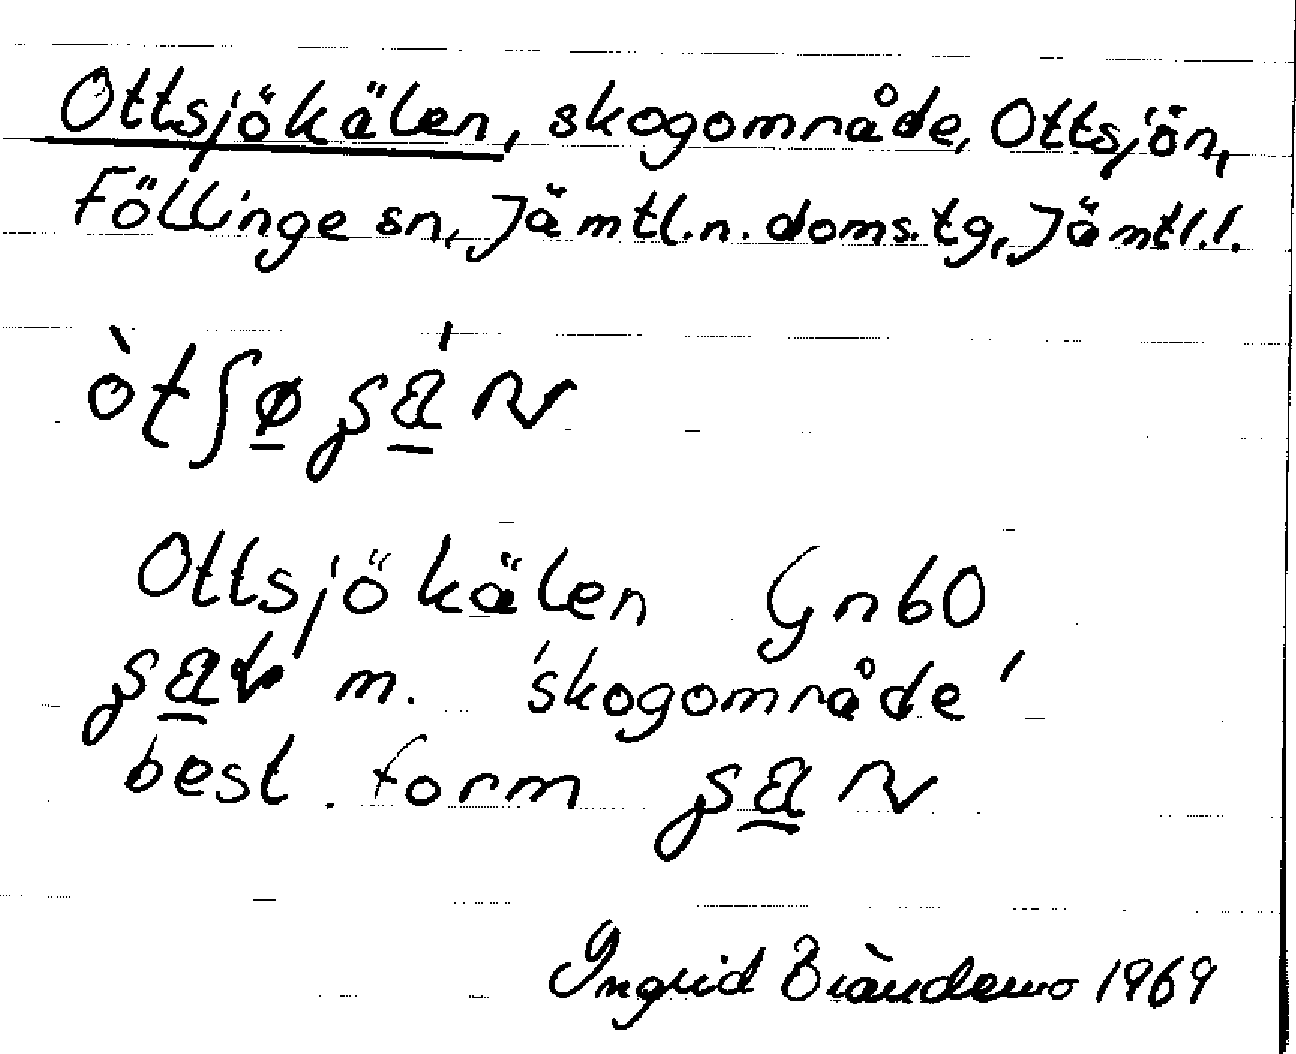 Ottsjökälen, skogområde, Ottsjön,
Föllinge sn, Jämtl.n. doms.tg, Jämtl.l.
Ottsjökälen Gnb0
m. 'skogområde'
best. form
Ingrid 1969